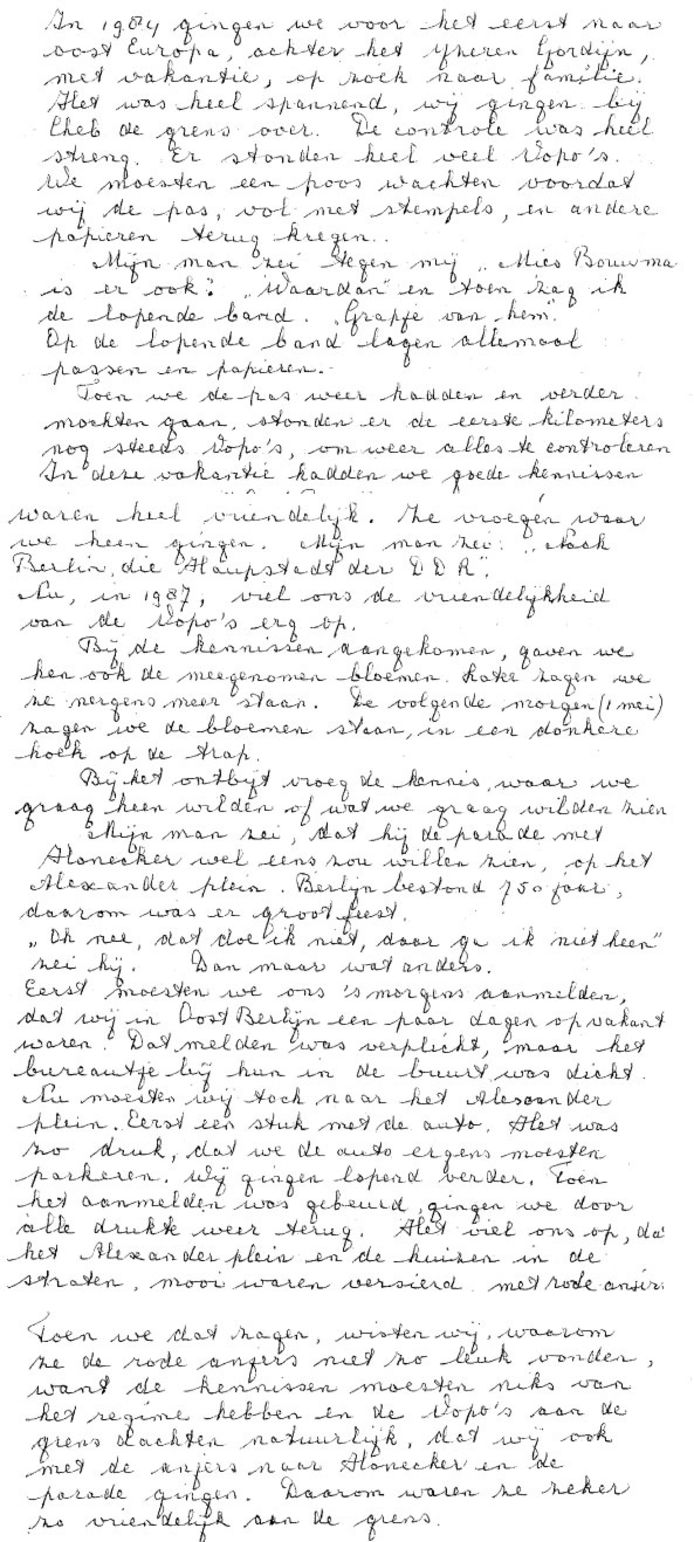 In 1984 gingen we voor het eerst naar
oost Europa, achter het yneren Gordijn,
met vakantie, op zoek naar familie.
Het was heel spannend, wij gingen bij
Cheb de grens over. De controle was heel
streng. Er stonden heel veel Vopo's.
We moesten een poos wachten voordat
wij de pas, vol met stempels, en andere
papieren terug kregen..
Mijn man zei tegen mij „Mies Bouwma
is er ook". „Waardan" en toen zag ik
de lopende band. „Grapje van hem".
Op de lopende band lagen allemaal
passen en papieren.
Toen we de pas weer hadden en verder
mochten gaan, stonden er de eerste kilometers
nog steeds Vopo's, om weer alles te controleren
In deze vakantie hadden we goede kennissen
waren heel vriendelijk. Ze vroegen waar
we heen gingen. Mijn man zei: „Nach
Berlin, die Haupstadt der DDR".
Nu, in 1987, viel ons de vriendelijkheid
van de Vopo's erg op.
Bij de kennissen aangekomen, gaven we
hen ook de meegenomen bloemen. Later zagen we
ze nergens meer staan. De volgende morgen (1 mei)
zagen we de bloemen staan, in een donkere
hoek op de trap.
Bij het ontbijt vroeg de kennis, waar we
graag heen wilden of wat we graag wilden zien
Mijn man zei, dat hij de parade met
Honecker wel eens zou willen zien, op het
Alexander plein. Berlijn bestond 750 jaar,
daarom was er groot feest.
„Oh nee, dat doe ik niet, daar ga ik niet heen"
zei hij. Dan maar wat anders.
Eerst moesten we ons 's morgens aanmelden,
dat wij in Oost Berlijn een paar dagen op vakant
waren. Dat melden was verplicht, maar het
bureautje bij hun in de buurt was dicht.
Nu moesten wij toch naar het Alexander
plein. Eerst een stuk met de auto. Het was
zo druk, dat we de auto ergens moesten
parkeren. Wij gingen lopend verder. Toen
het aanmelden was gebeurd, gingen we door
alle drukte weer terug. Het viel ons op, da
het Alexander plein en de huizen in de
straten, mooi waren versierd met rode anjer
Toen we dat zagen, wisten wij, waarom
ze de rode anjers niet zo leuk vonden,
want de kennissen moesten niks van
het regime hebben en de Vopo's aan de
grens dachten natuurlijk, dat wij ook
met de anjers naar Honecker en de
parade gingen. Daarom waren ze zeker
zo vriendelijk aan de grens.